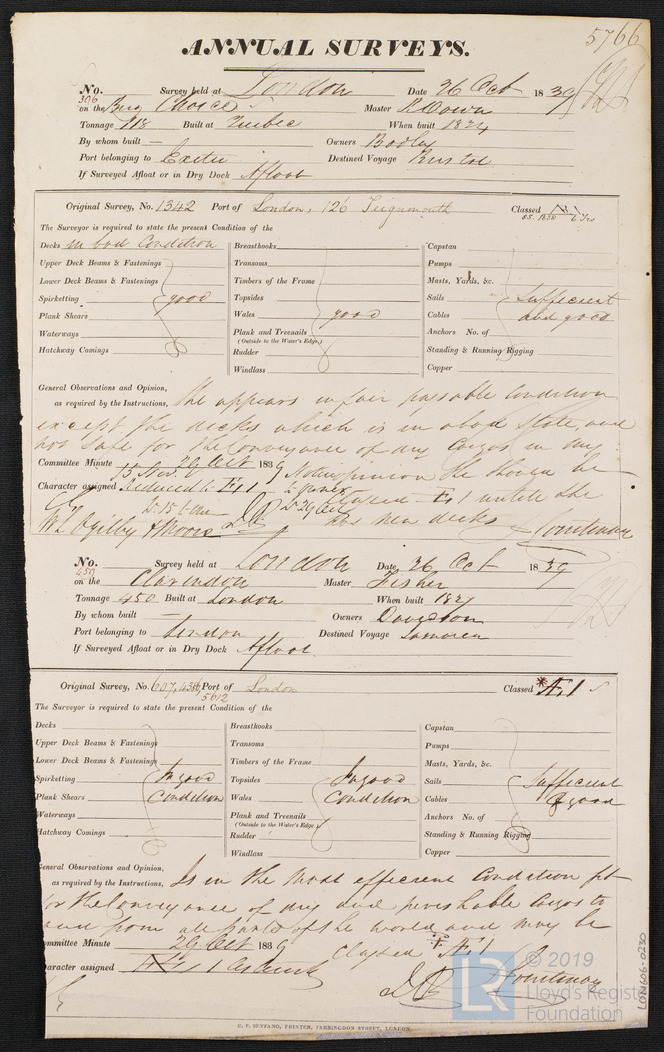 5766
ANNUAL SURVEYS.
No. 306 Survey held at London Date 26 Oct 1839
on the Brig Choice Master
Tonnage 118 Built at Quebec When built 1824
By whom built — Owners
Port belonging to Exeter Destined Voyage Bristol
If Surveyed Afloat or in Dry Dock Afloat
Original Survey, No. 1342 Port of London, 126 Teignmouth Classed
The Surveyor is required to state the present Condition of the
Decks in bad Condition Breasthooks Capstan
Upper Deck Beams & Fastenings Transoms Pumps
Lower Deck Beams & Fastenings Timbers of the Frame Masts, Yards, &c.
Spirketting good Topsides Sails Sufficient
Plank Shears Wales good Cables and good
Waterways Plank and Treenails (Outside to the Water's Edge.) Anchors No. of
Hatchway Comings Rudder Standing & Running Rigging
Windlass Copper
General Observations and Opinion, She appears in fair passable Condition
as required by the Instructions,
except the decks which is in a bad State, and
not safe for the Conveyance of dry Cargos in my
Committee Minute 29 Oct 1839 opinion She should be
Character assigned Reduced to Æ 1 Classed Æ 1 until she
has new decks Courtenay
No. 450 Survey held at London Date 26 Oct 1839
on the Clarendon Master Fisher
Tonnage 450 Built at London When built 1827
By whom built — Owners Davidson
Port belonging to London Destined Voyage Jamaica
If Surveyed Afloat or in Dry Dock Afloat.
Original Survey, No. 607, 4386 Port of London Classed *Æ 1
5612
The Surveyor is required to state the present Condition of the
Decks Breasthooks Capstan
Upper Deck Beams & Fastenings Transoms Pumps
Lower Deck Beams & Fastenings Timbers of the Frame Masts, Yards, &c.
Spirketting In good Topsides In good Sails Sufficient
Plank Shears Condition Wales Condition Cables & good
Waterways Plank and Treenails (Outside to the Water's Edge.) Anchors No. of
Hatchway Comings Rudder Standing & Running Rigging
Windlass Copper
General Observations and Opinion, Is in the Most efficient Condition fit
as required by the Instructions,
for the Conveyance of dry and perishable Cargos to
and from all parts of the world and may be
Committee Minute 29 Oct 1839 Classed Æ 1
Character assigned Æ 1 Courtenay
© 2019
Lloyd's Register
Foundation
LON606-0230
C. F. SEYFANG, PRINTER, FARRINGDON STREET, LONDON.